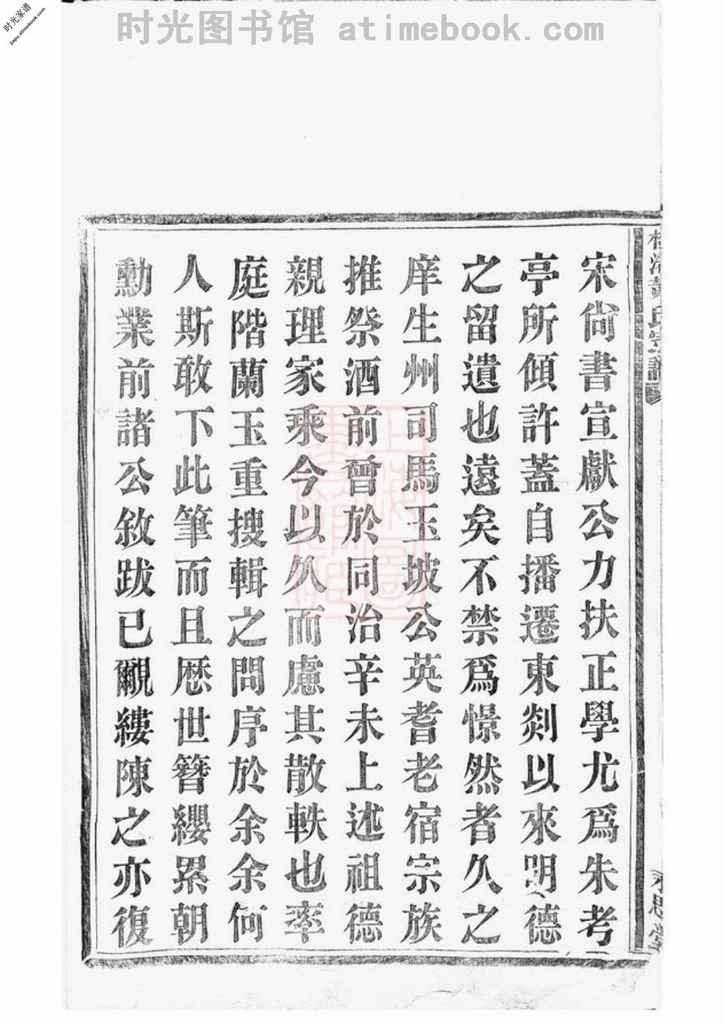 时光图书馆 atimebook.com
时光家谱
宋尙書宣獻公力扶正學尤爲朱考
亭所傾許蓋自播遷東剡以來明德
之留遺也遠矣不禁爲憬然者久之
庠生州司馬玉坡公英耆老宿宗族
推祭酒前曾於同治辛未上述祖德
親理家乘今以久而慮其散軼也率
庭階蘭玉重搜輯之問序於余余何
人斯敢下此筆而且厯世簪纓累朝
勳業前諸公敘跋已覼縷陳之亦復
氏宗譜
永思堂